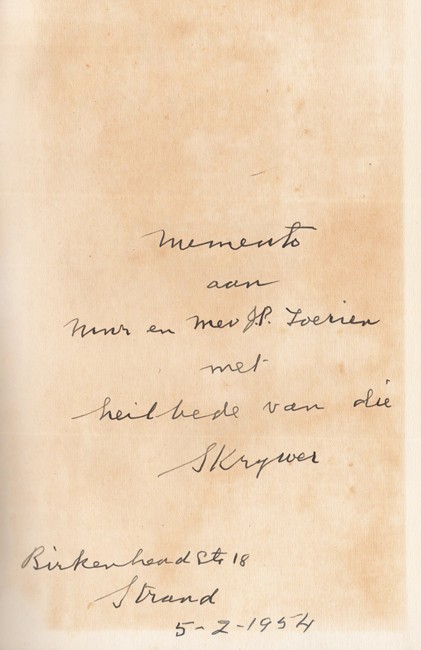 Memento
aan
Mnr en Mev J.P. Loerien
met
heilbede van die
Skrywer
Birkenhead Str 18
Strand
5-2-1954